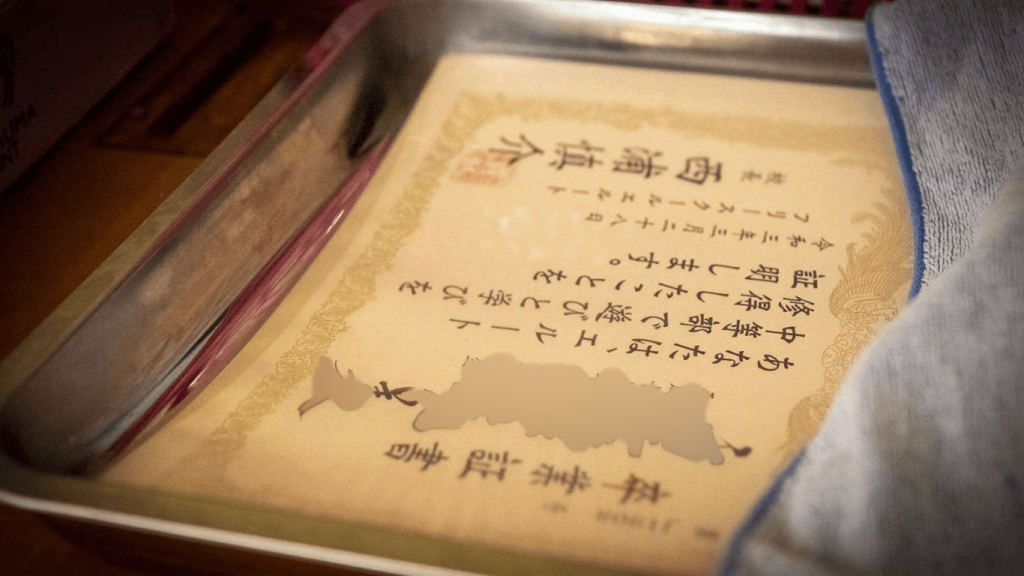 卒業証書
あなたは、エルート
中等部で遊びと学びを
修得したことを
証明します。
令和三年三月二十八日
フリースクールエルート
校長 西浦慎介